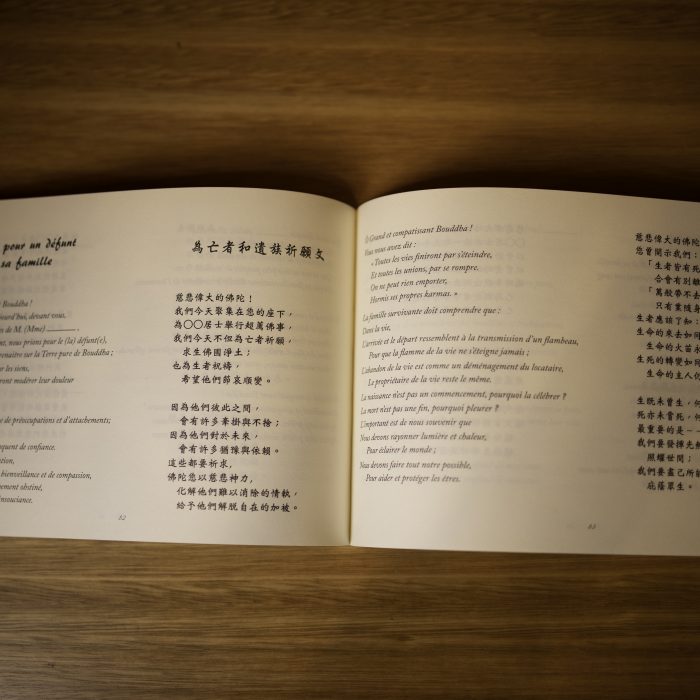 pour un défunt
sa famille
Bouddha !
devant vous,
de M. (Mme)
nous prions pour le (la) défunt(e),
renaître sur la Terre pure de Bouddha ;
les siens,
modérer leur douleur
de préoccupations et d'attachements;
manquent de confiance.
bienveillance et de compassion,
obstiné,
insouciance.
為亡者和遺族祈願文
慈悲偉大的佛陀！
我們今天聚集在您的座下，
為○○居士舉行超薦佛事，
我們今天不但為亡者祈願，
求生佛國淨土；
也為生者祝禱，
希望他們節哀順變。
因為他們彼此之間，
會有許多牽掛與不捨；
因為他們對於未來，
會有許多猶豫與依賴。
這些都要祈求，
佛陀您以慈悲神力，
化解他們難以消除的情執，
給予他們解脫自在的加被。
82
Ô Grand et compatissant Bouddha !
Vous nous avez dit :
« Toutes les vies finiront par s'éteindre,
Et toutes les unions, par se rompre.
On ne peut rien emporter,
Hormis ses propres karmas. »
La famille survivante doit comprendre que :
Dans la vie,
L'arrivée et le départ ressemblent à la transmission d'un flambeau,
Pour que la flamme de la vie ne s'éteigne jamais ;
L'abandon de la vie est comme un déménagement du locataire,
Le propriétaire de la vie reste le même.
La naissance n'est pas un commencement, pourquoi la célébrer ?
La mort n'est pas une fin, pourquoi pleurer ?
L'important est de nous souvenir que
Nous devons rayonner lumière et chaleur,
Pour éclairer le monde ;
Nous devons faire tout notre possible,
Pour aider et protéger les êtres.
慈悲偉大的佛陀
您曾開示我們：
「生者皆有死
合會有別離
萬般帶不去
只有業隨身
生者應該了知：
生命的來去如
生命的火苗永
生死的轉變如
生命的主人
生既未曾生，
死亦未嘗死，
最重要的是－
我們要發揮光
照耀世間；
我們要盡己所能
庇蔭眾生。
83